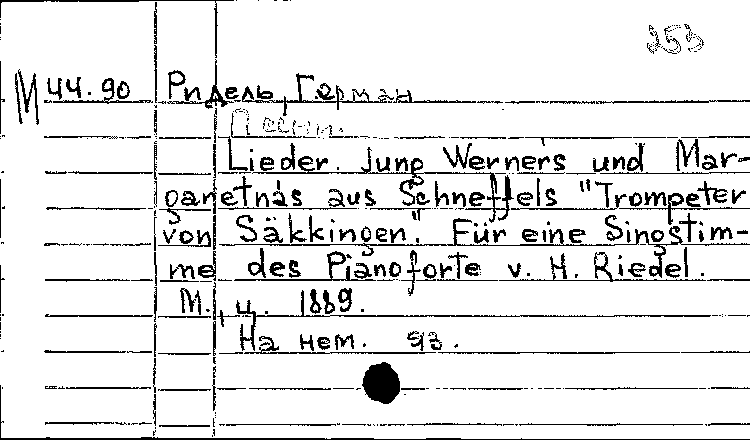 253
М 44.90 Ридель, Герман
Песни.
Lieder. Jung Werner's und Mar-
garetna's aus Schneffels "Trompeter
von Säkkingen". Für eine Singstim-
me des Pianoforte v. H. Riedel.
М., ц. 1889.
На нем. яз.